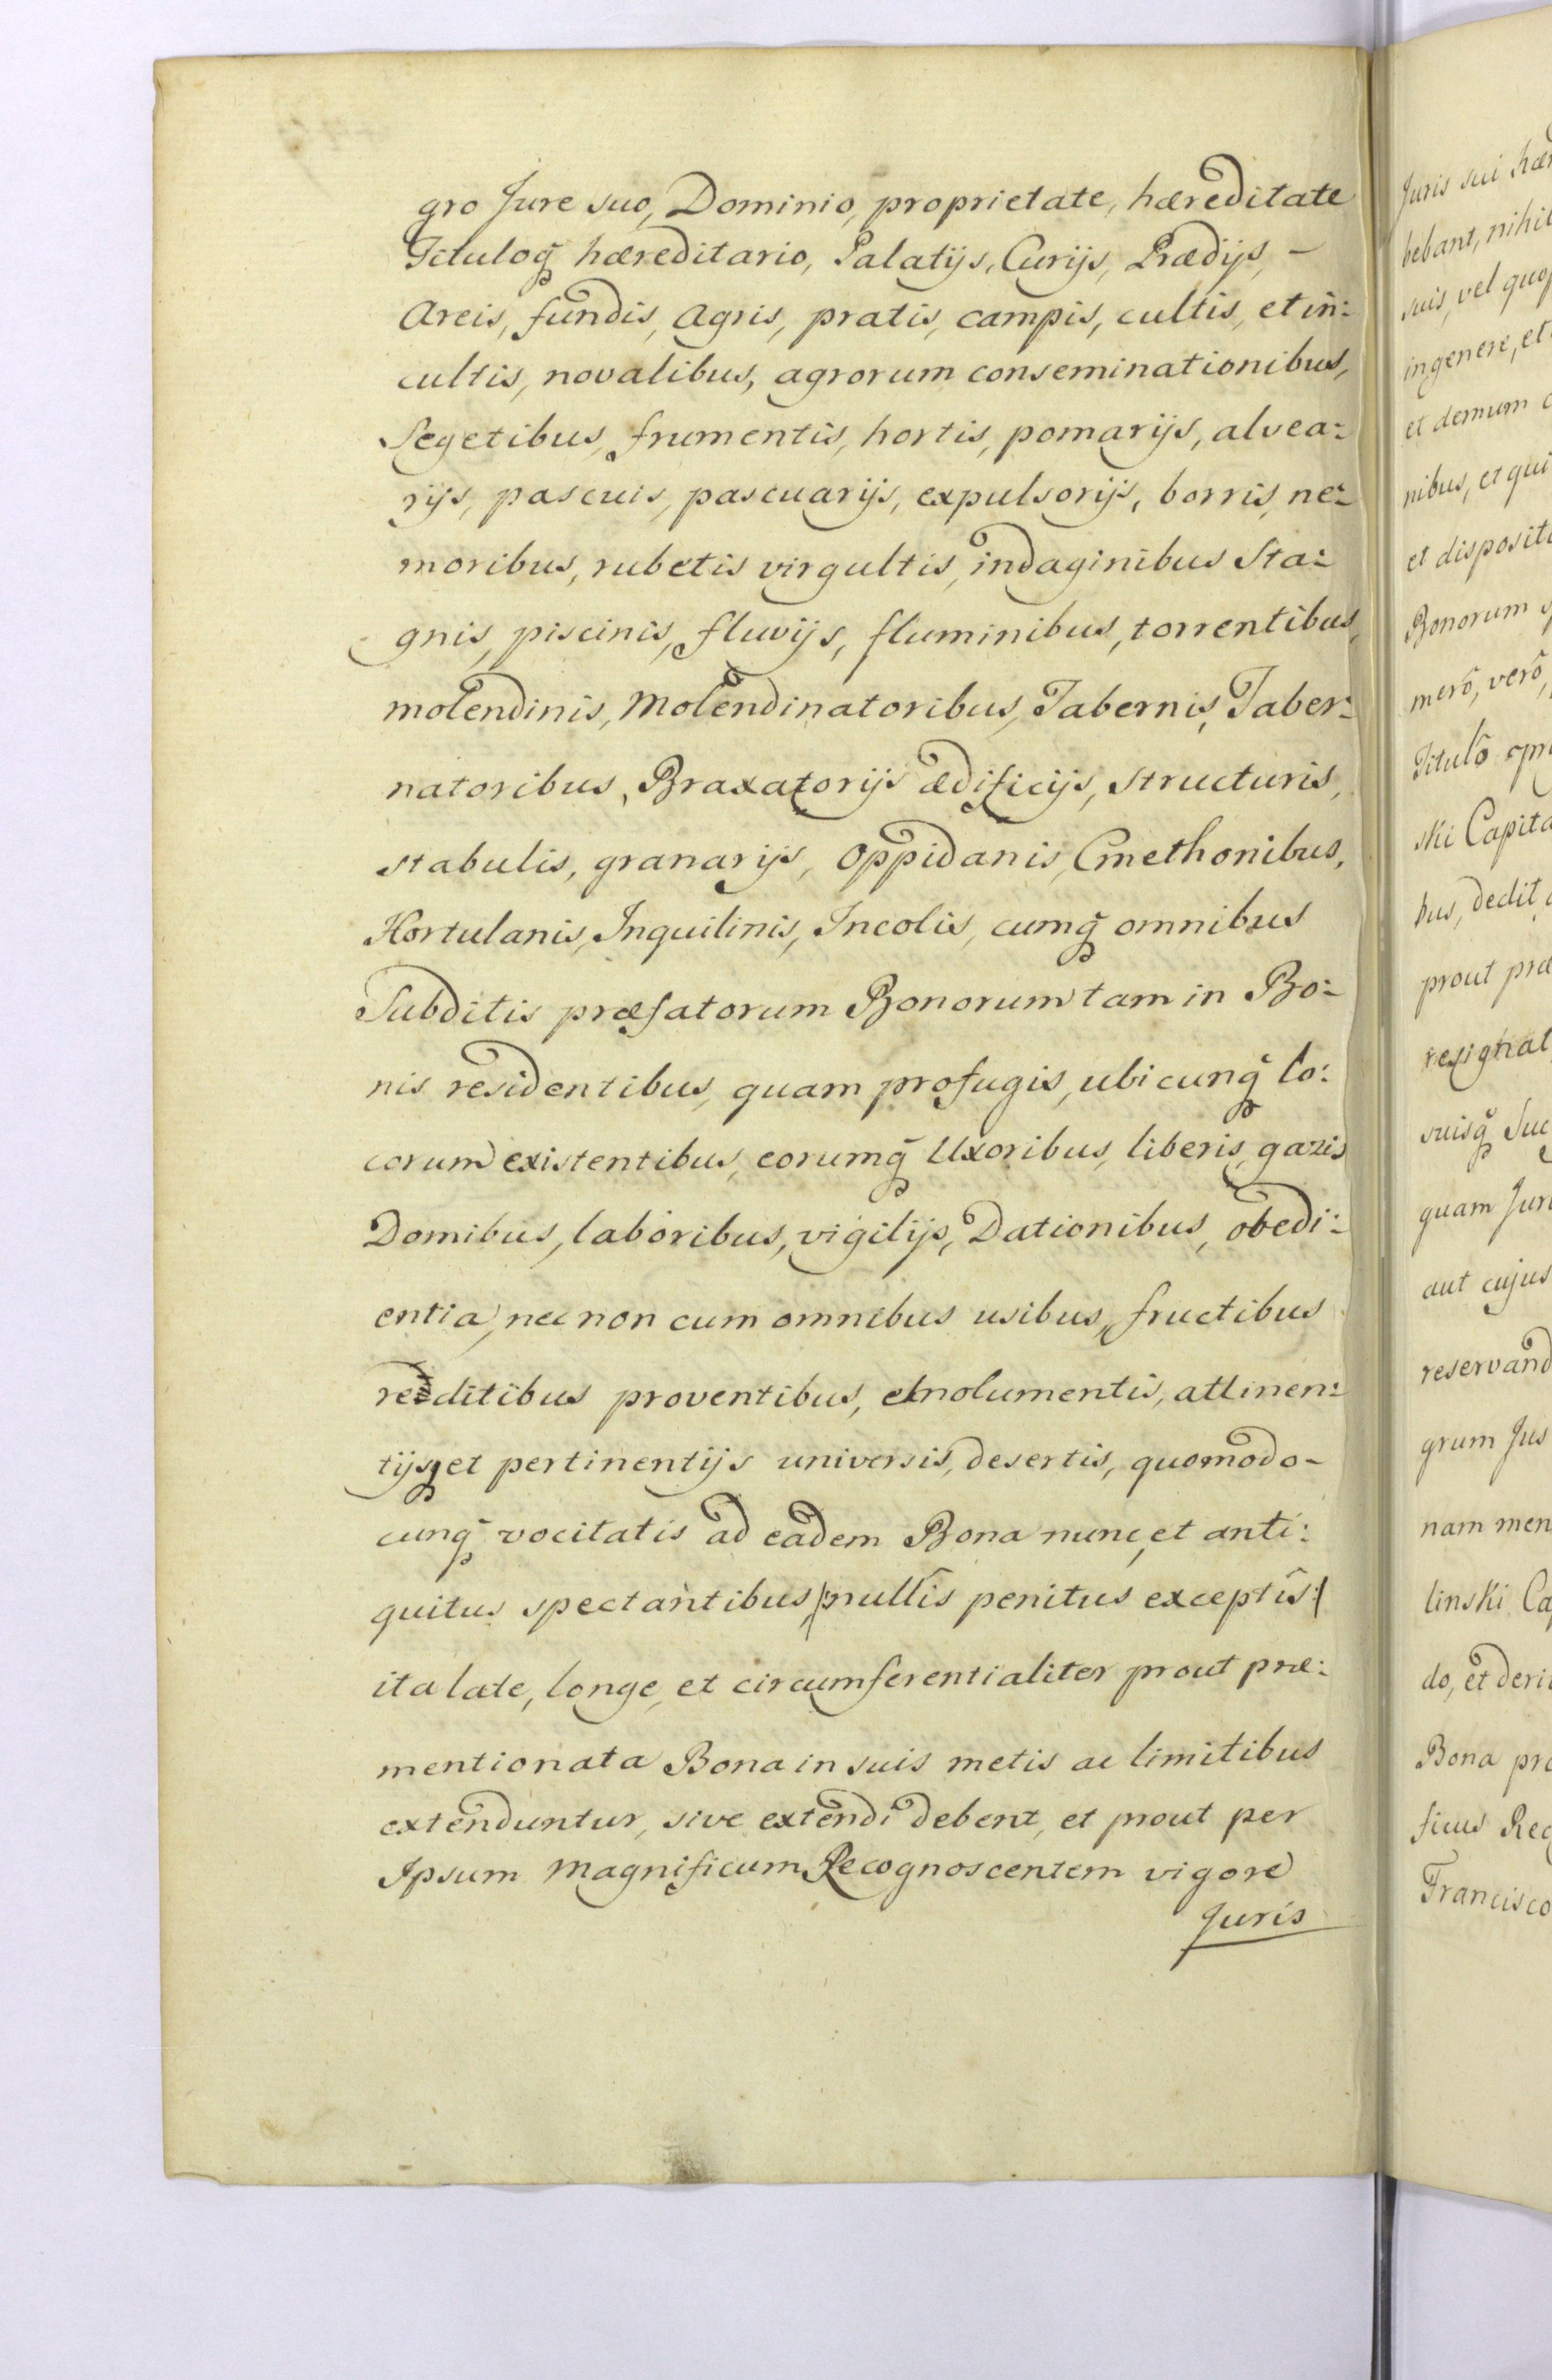 gro Jure suo, Dominio, proprietate, hæreditate
Tituloq̃ hæreditario, Palatijs, Curijs, Prædijs, -
Areis, fundis, Agris, pratis, campis, cultis, et in:
cultis, novalibus, agrorum conseminationibus,
Segetibus, frumentis, hortis, pomarijs, alvea:
rijs, pascuis, pascuarijs, expulsorijs, borris, ne:
moribus, rubetis virgultis, indaginibus Sta:
gnis, piscinis, fluvijs, fluminibus, torrentibus,
molendinis, Molendinatoribus, Tabernis, Taber:
natoribus, Braxatorijs ædificijs, structuris,
stabulis, granarijs, Oppidanis, Cmethonibus,
Hortulanis, Inquilinis, Incolis, cumq̃ omnibus
Subditis præfatorum Bonorum tam in Bo:
nis residentibus, quam profugis, ubicunq̃ lo:
corum existentibus, eorumq̃ Uxoribus, liberis, gazis
Domibus, laboribus, vigilijs, Dationibus, obedi:
entia, nec non cum omnibus usibus, fructibus
redditibus proventibus, emolumentis, attinen:
tijsq̃ et pertinentijs universis, desertis, quomodo-
cunq̃ vocitatis ad eadem Bona nunc, et anti:
quitus spectantibus, /:nullis penitus exceptis:/
ita late, longe, et circumferentialiter prout præ:
mentionata Bona in suis metis ac limitibus
extenduntur, sive extendi debent, et prout per
Ipsum Magnificum Recognoscentem vigore
Juris
Juris sui
bebant, nihil
suis, vel
in genere, et
et demum
nibus, et
et
Bonorum
merô, verô,
Titulô
ski
bus, dedit
prout

suisq̃
quam
aut cujus

grum Jus
nam
linski
do, et
Bona
ficus
Francisco